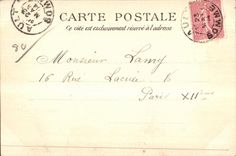 CARTE POSTALE
Ce côté est exclusivement réservé à l'adresse
80
Monsieur Lamy
16 Rue Lacuée 6
Paris XIIme